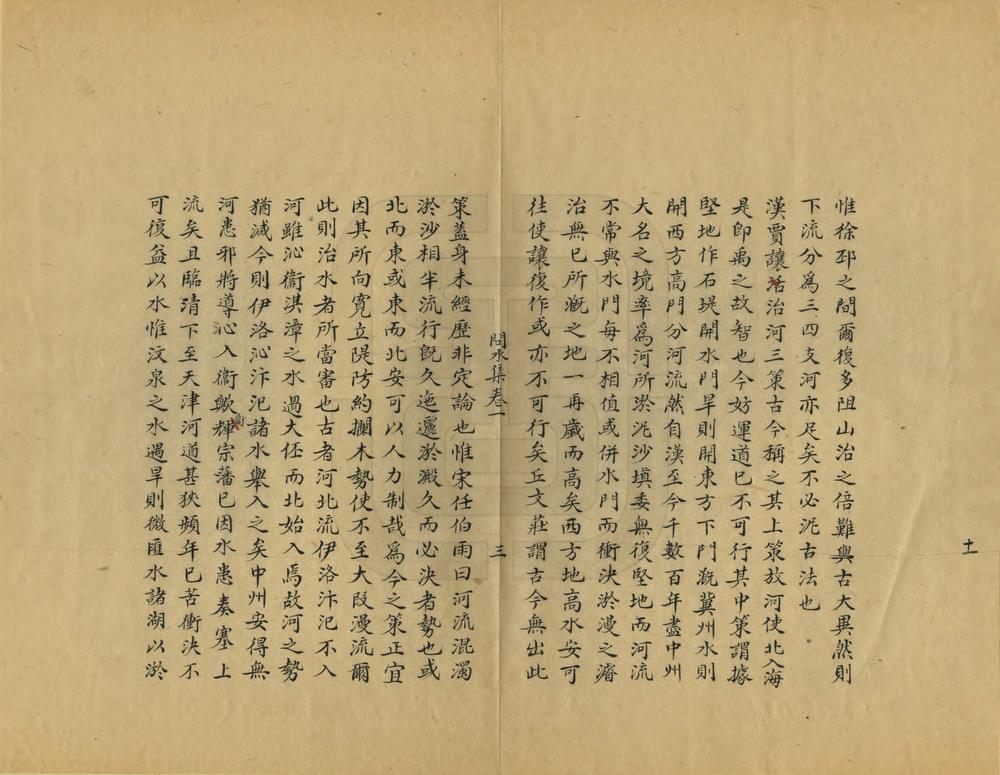 惟徐邳之間爾復多阻山治之倍難與古大異然則
下流分爲三四支河亦足矣不必泥古法也
漢賈讓治河三策古今稱之其上策放河使北入海
是卽禹之故智也今妨運道已不可行其中策謂據
堅地作石堤開水門旱則開東方下門溉冀州水則
開西方高門分河流然自漢至今千數百年盡中州
大名之境率爲河所淤泥沙填委無復堅地而河流
不常與水門每不相值或併水門而衝決淤漫之瘠
治無已所溉之地一再歲而高矣西方地高水安可
往使讓復作或亦不可行矣丘文莊謂古今無出此
問水集卷一
三
策蓋身未經歷非定論也惟宋任伯雨曰河流混濁
淤沙相半流行旣久迤邐淤澱久而必決者勢也或
北而東或東而北安可以人力制哉爲今之策正宜
因其所向寛立隄防約攔木勢使不至大段漫流爾
此則治水者所當審也古者河北流伊洛汴汜不入
河雖沁衞淇漳之水過大伾而北始入焉故河之勢
猶減今則伊洛沁汴汜諸水舉入之矣中州安得無
河患邪將導沁入衞歟輝宗藩已因水患奏塞上
流矣且臨清下至天津河道甚狹頻年已苦衝決不
可復益以水惟汶泉之水遇旱則微匯水諸湖以淤
十一